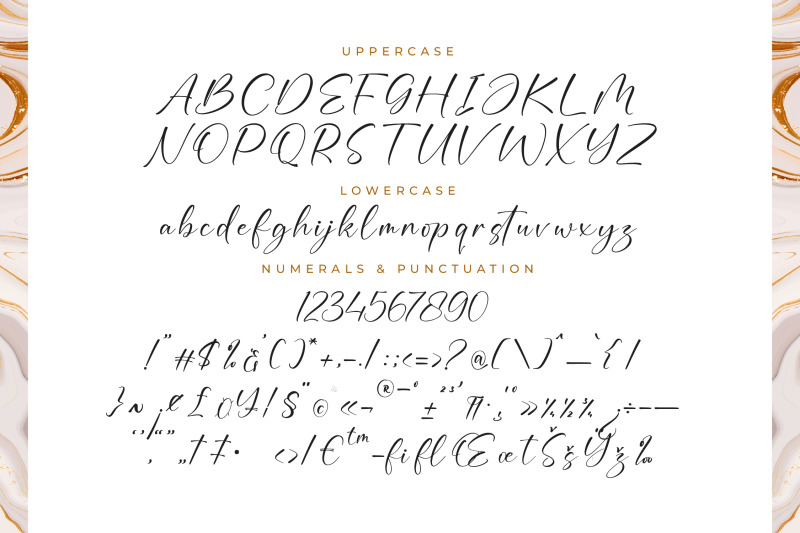 UPPERCASE
ABCDEFGHIJKLM
NOPQRSTUVWXYZ
LOWERCASE
abcdefghijklmnopqrstuvwxyz
NUMERALS & PUNCTUATION
1234567890
!"#$‰&'()*+,-./:;<=>?@(\)^_`{|
}~¡¢£¤¥¦§¨©«¬®¯°±²³'¶·¸¹º»¼½¾¿÷––
‘’‚“”„†‡•‹›/€™−fiflŒœtŠšŸž‰